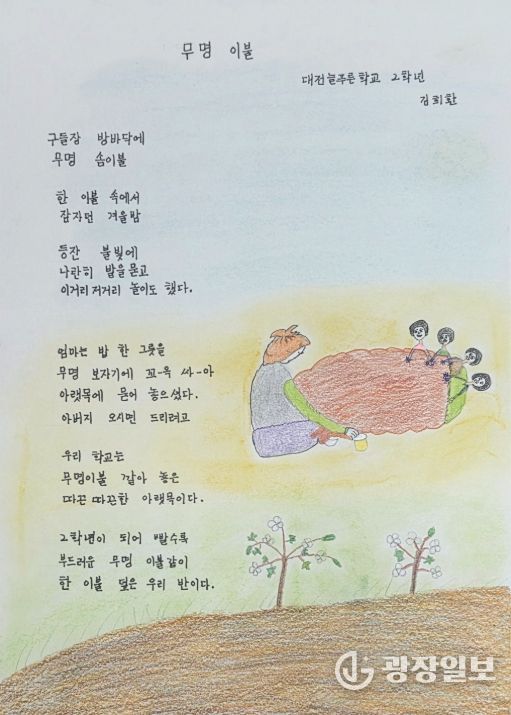 무명 이불
대전늘푸른학교 2학년
김희환
구들장 방바닥에
무명 솜이불
한 이불 속에서
잠자던 겨울밤
등잔 불빛에
나란히 발을 묻고
이거리저거리 놀이도 했다.
엄마는 밥 한 그릇을
무명 보자기에 꼬-옥 싸-아
아랫목에 묻어 놓으셨다.
아버지 오시면 드리려고
우리 학교는
무명이불 깔아 놓은
따끈 따끈한 아랫목이다.
2학년이 되어 빨수록
부드러운 무명 이불같이
한 이불 덮은 우리 반이다.
광장일보